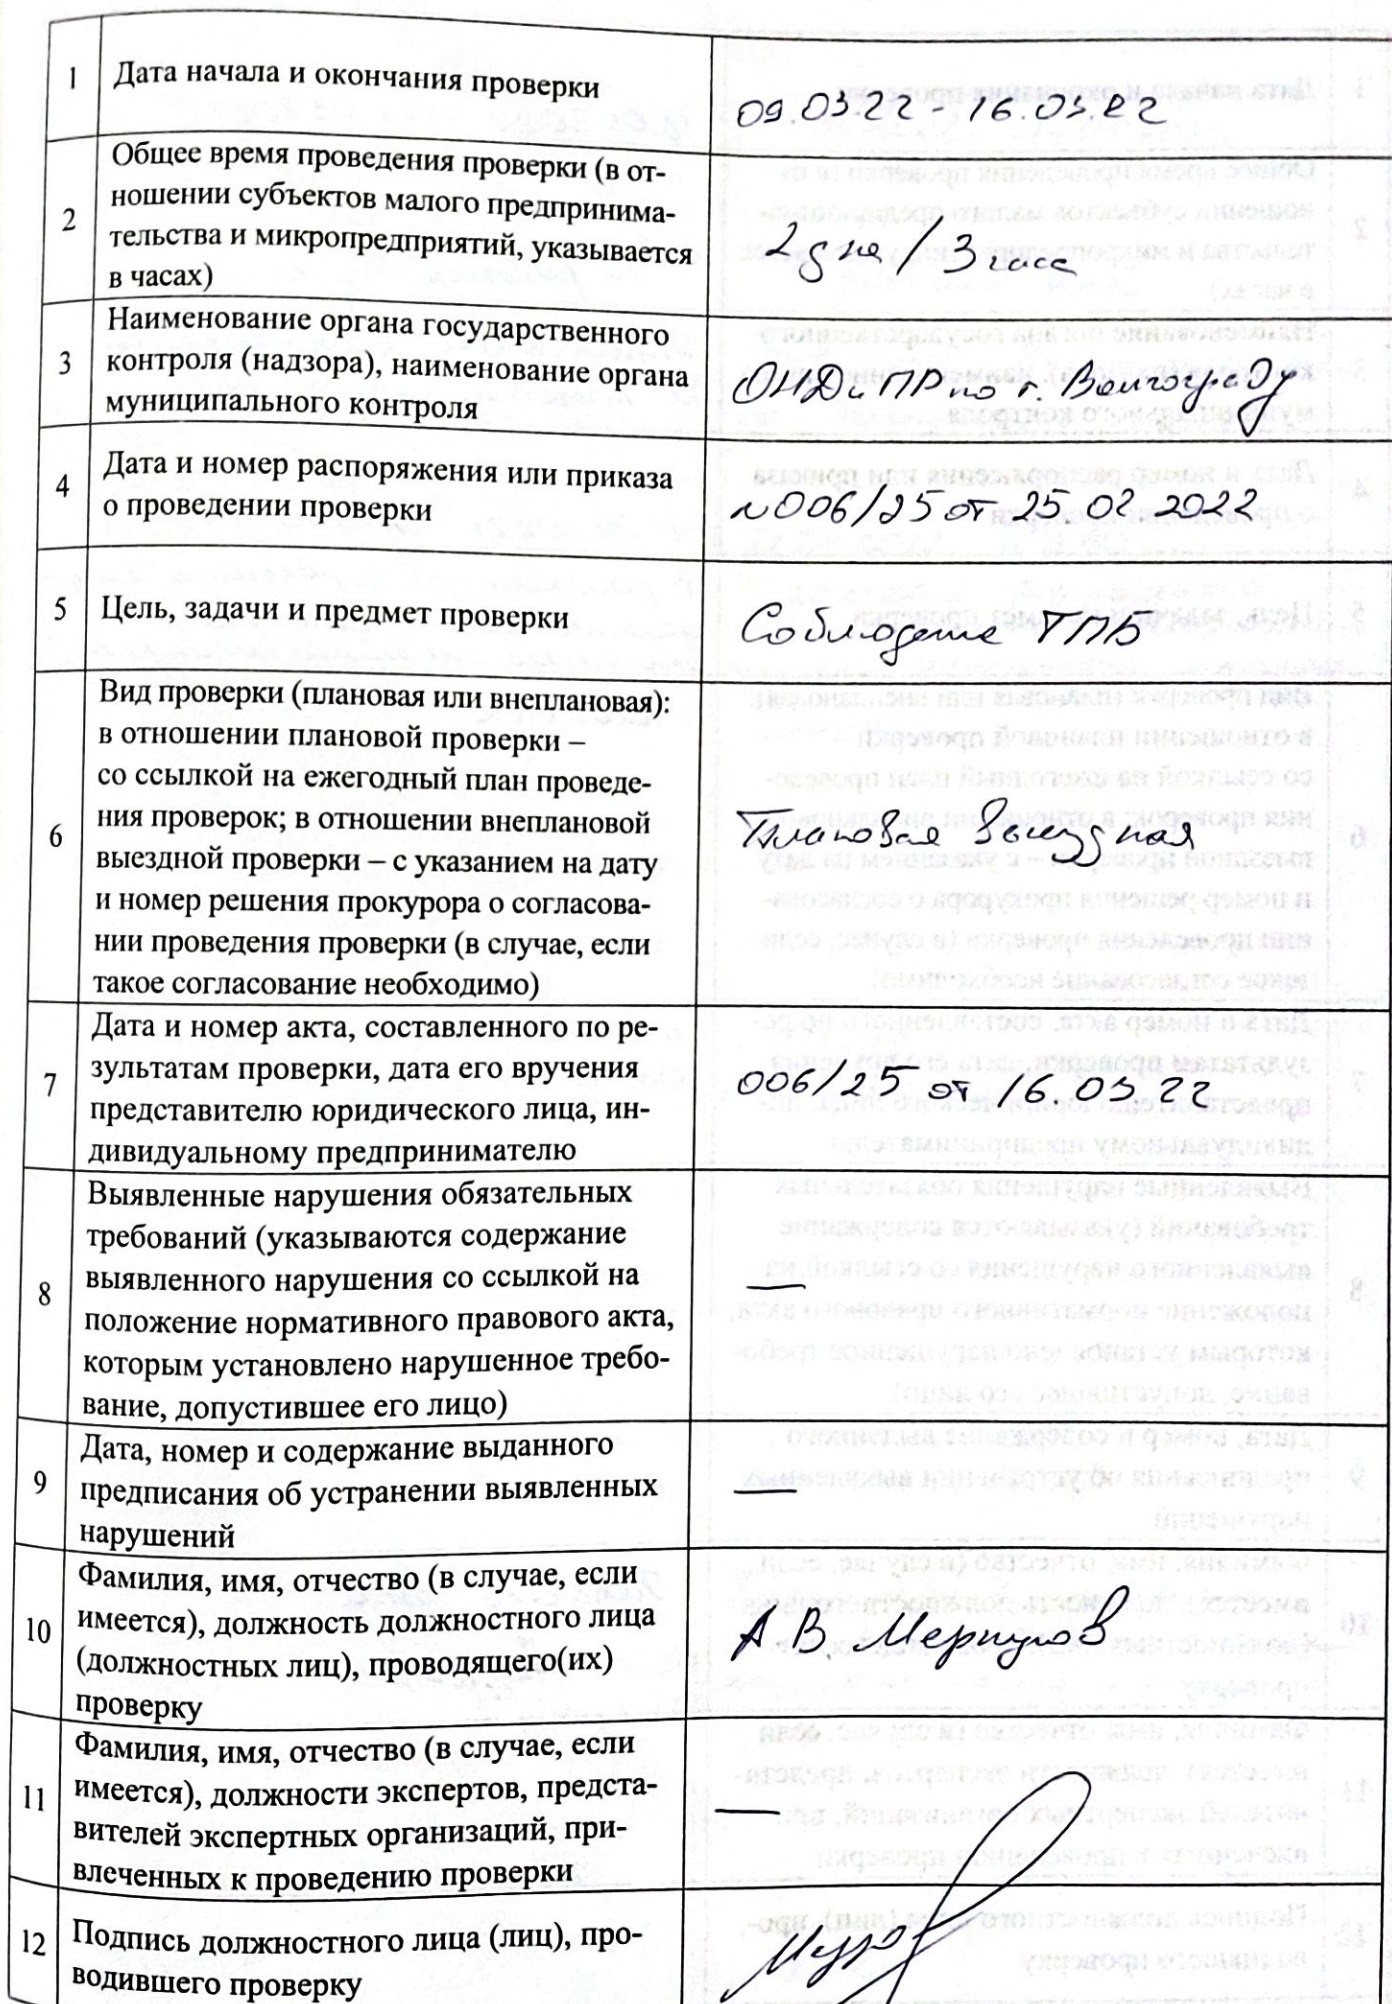 1
Дата начала и окончания проверки
09.03.22 - 16.03.22
2
Общее время проведения проверки (в от-
ношении субъектов малого предпринима-
тельства и микропредприятий, указывается
в часах)
2 дня / 3 часа
3
Наименование органа государственного
контроля (надзора), наименование органа
муниципального контроля
ОНДиПР по г. Волгограду
4
Дата и номер распоряжения или приказа
о проведении проверки
№006/25 от 25.02.2022
5
Цель, задачи и предмет проверки
Соблюдение ТПБ
6
Вид проверки (плановая или внеплановая):
в отношении плановой проверки –
со ссылкой на ежегодный план проведе-
ния проверок; в отношении внеплановой
выездной проверки – с указанием на дату
и номер решения прокурора о согласова-
нии проведения проверки (в случае, если
такое согласование необходимо)
Плановая выездная
7
Дата и номер акта, составленного по ре-
зультатам проверки, дата его вручения
представителю юридического лица, ин-
дивидуальному предпринимателю
006/25 от 16.03.22
8
Выявленные нарушения обязательных
требований (указываются содержание
выявленного нарушения со ссылкой на
положение нормативного правового акта,
которым установлено нарушенное требо-
вание, допустившее его лицо)
—
9
Дата, номер и содержание выданного
предписания об устранении выявленных
нарушений
—
10
Фамилия, имя, отчество (в случае, если
имеется), должность должностного лица
(должностных лиц), проводящего(их)
проверку
А.В. Меркулов
11
Фамилия, имя, отчество (в случае, если
имеется), должности экспертов, предста-
вителей экспертных организаций, при-
влеченных к проведению проверки
—
12
Подпись должностного лица (лиц), про-
водившего проверку